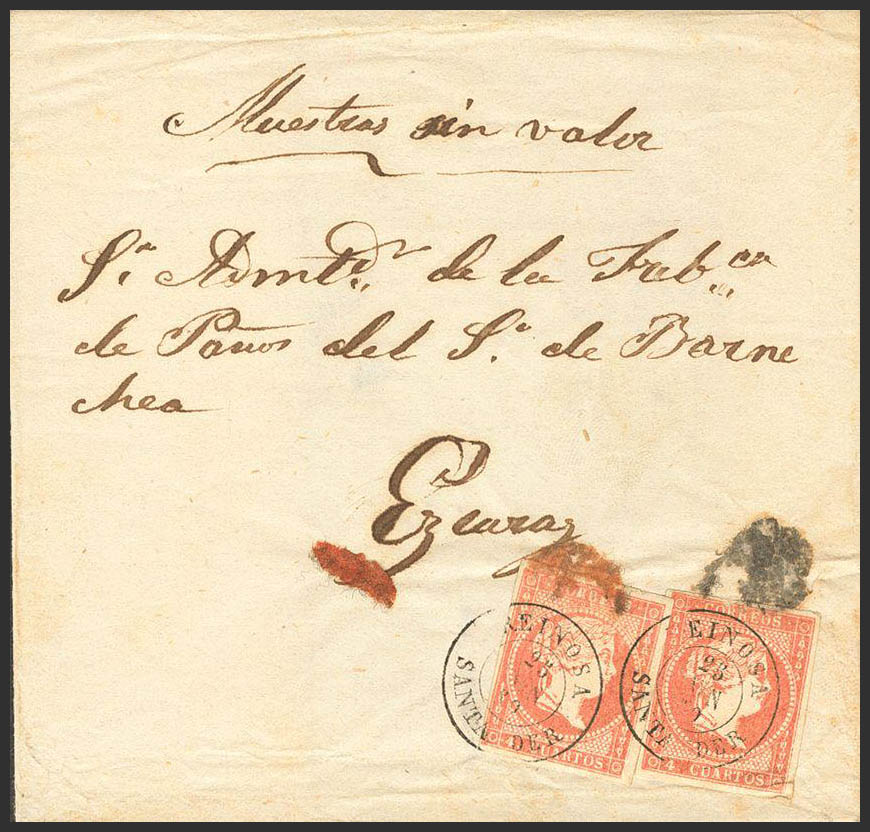 Muestras sin valor
Sr. Admtdr. de la Fabca
de Paños del Sr. de Barne
chea
Ezcaray
REINOSA
23
SANTANDER
CUARTOS
CORREOS
EINOSA
23
SANTANDER
4 CUARTOS